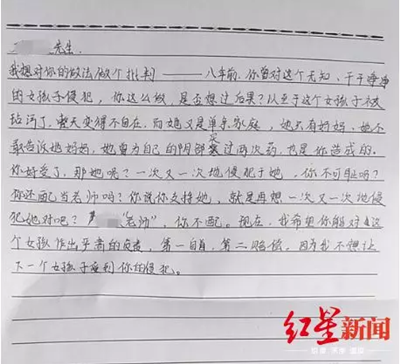 先生.
我想对你的做法做个批判——八年前.你曾对这个无知、干干净净
的女孩子侵犯,你这么做,是否想过后果?以至于这个女孩子被
玷污了,整天变得不自在,而她又是单亲家庭,她只有妈妈,她不
敢告诉她妈妈,她曾为自己的阴部买过两次药,也是你造成的.
你好受了,那她呢?一次又一次地侵犯于她,你不可耻吗?
你还配当老师吗?你说你支持她,就是再想一次又一次地侵
犯她对吧?"老师",你不配。现在,我希望你能对这
个女孩作出乎者的责任,第一自首,第二赔偿,因为我不想让
下一个女孩子受到你的侵犯。
红星新闻